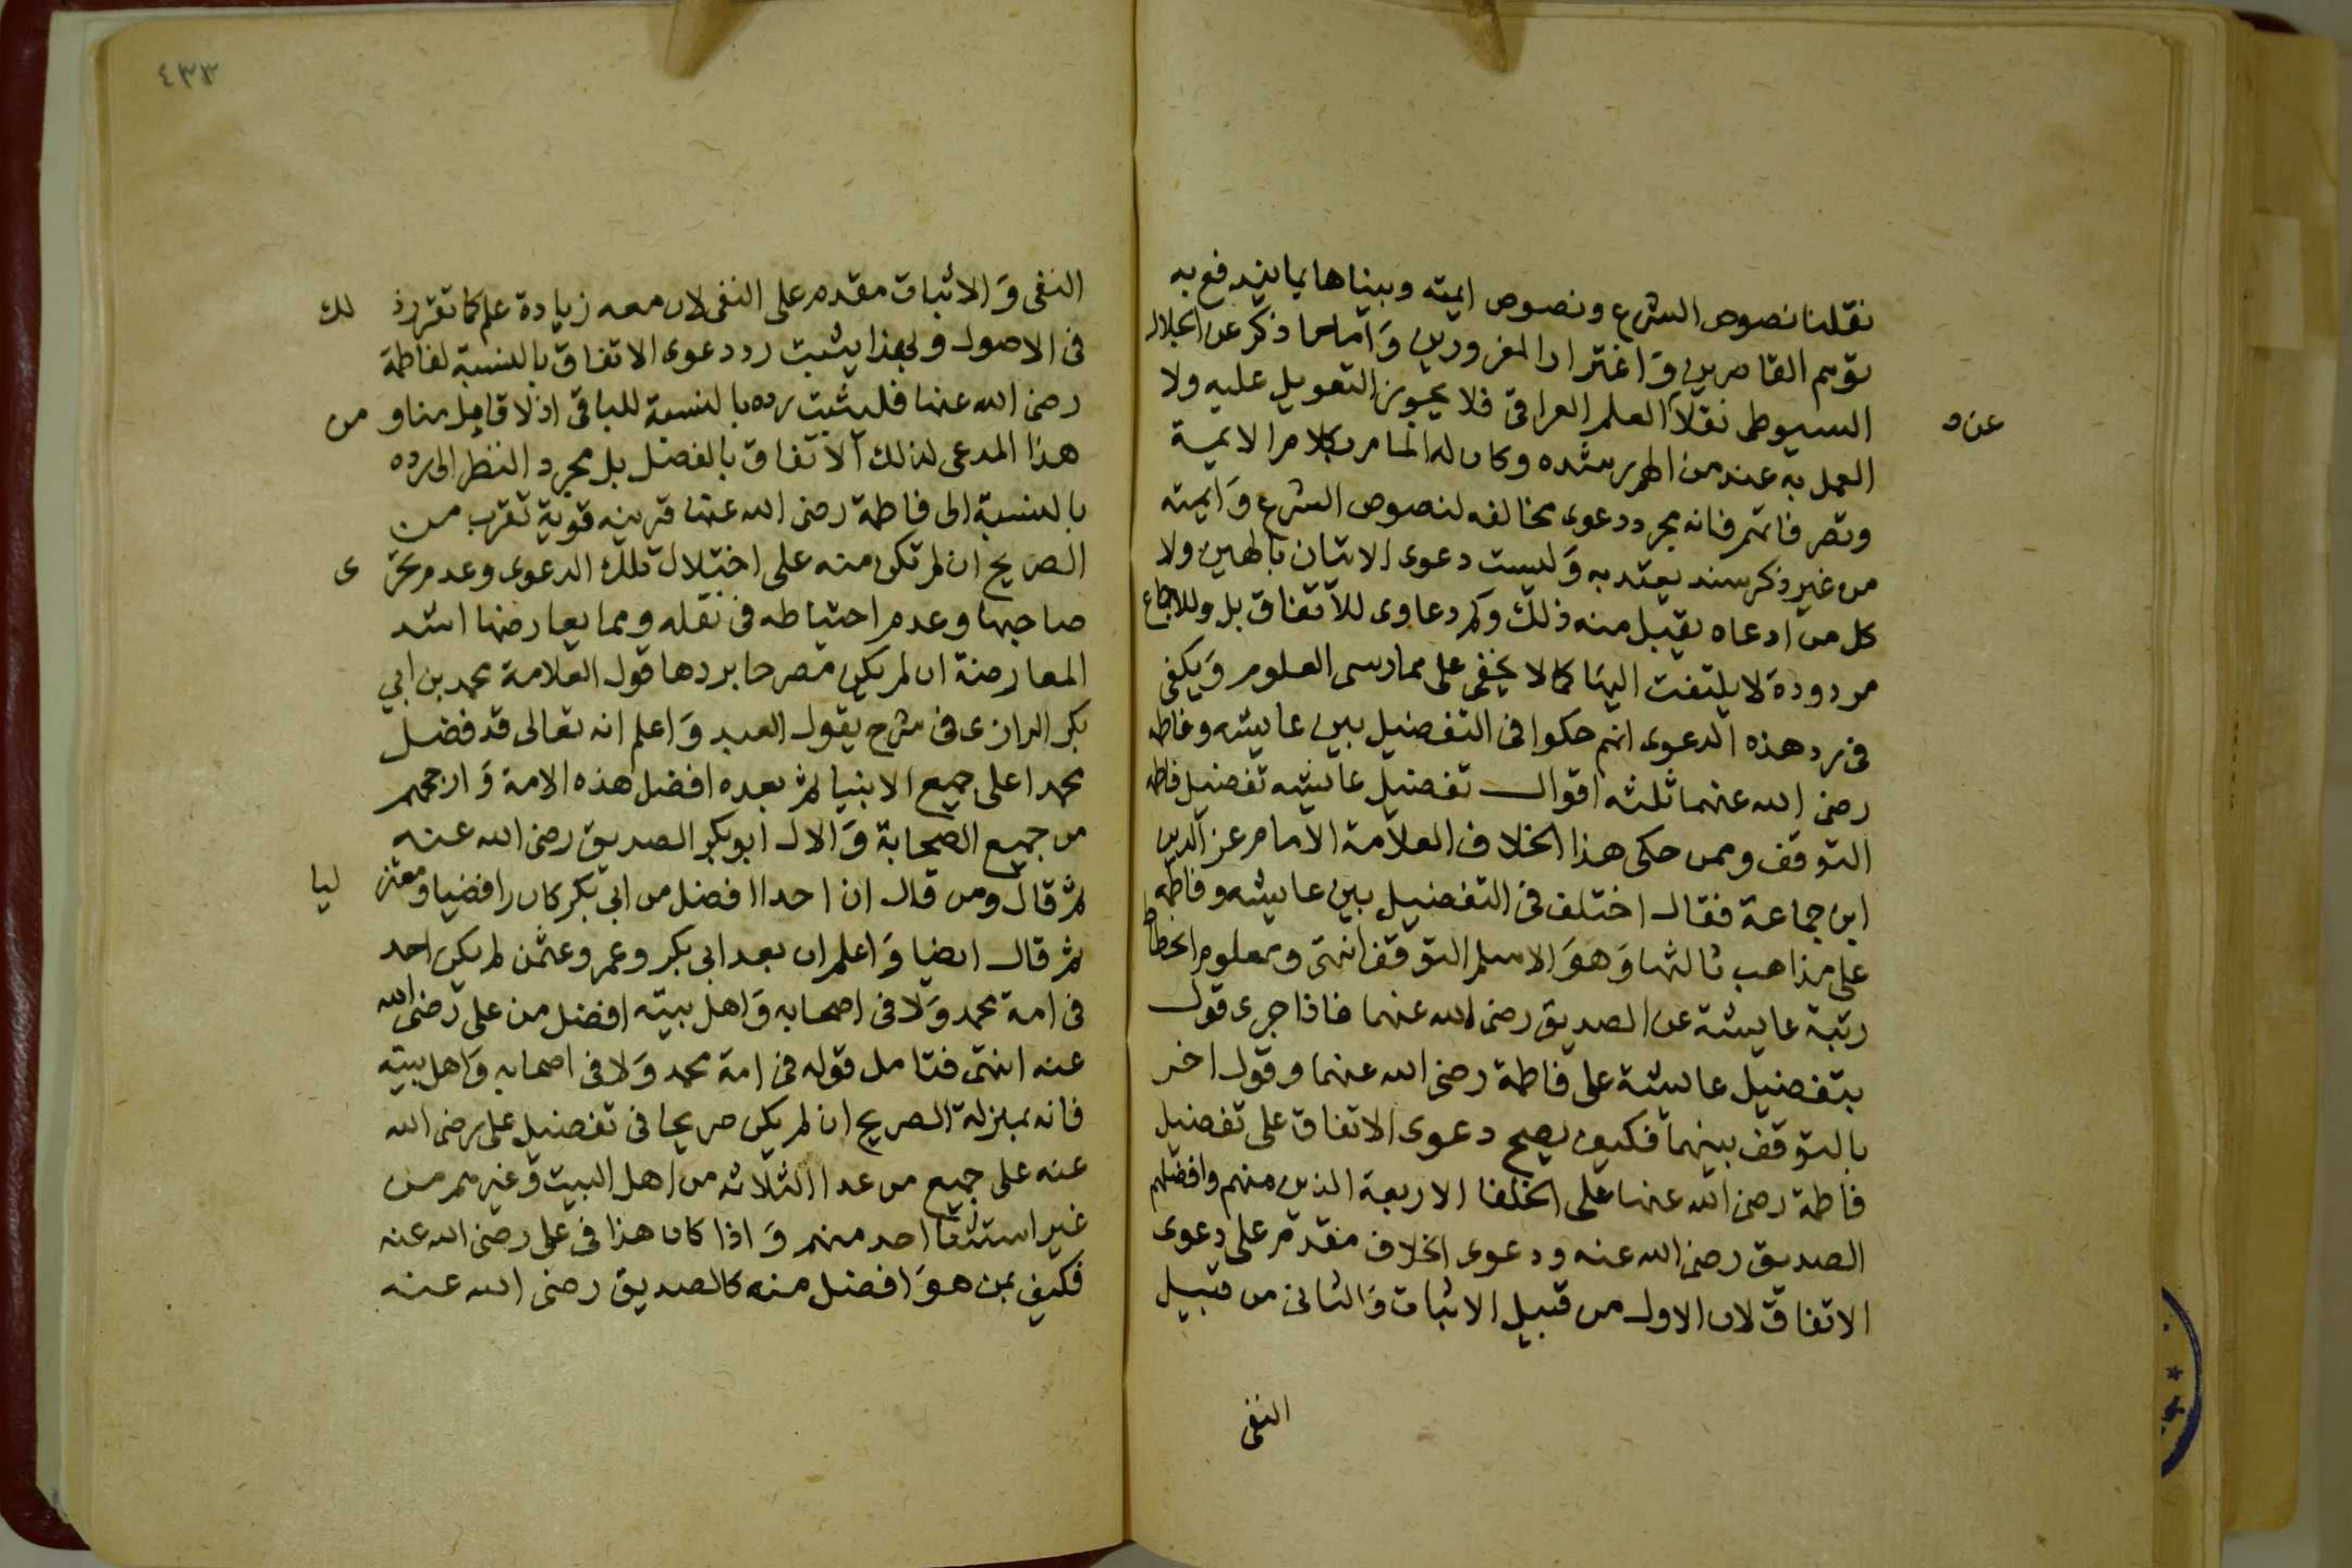 نقلنا نصوص الشرع ونصوص ايمته وبيناها بما يندفع به
توهم القاصرين وَاغترار المغرورين وَاما ما ذكر عن الجلال
السيوطى نقلاً العلم العراقى فلا يجوز التعويل عليه ولا
عن
العمل به عند من الهم رشده وكان له المام بكلام الايمة
وتصرفاتهم فانه مجرد دعوى مخالفه لنصوص الشرع وَايمته
من غير ذكر سند يعتد به وَليست دعوى الاتيان بالهين ولا
كل من ادعاه يقبل منه ذلك وَكم دعاوى للاتفاق بل وللاجماع
مردودة لا يلتفت اليها كما لا يخفى على ممارسى العلوم وَيكفى
فى رد هذه الدعوى انهم حكوا فى التفضيل بين عايشه وفاطمه
رضى الله عنهما ثلثه اقوال تفضيل عايشه تفضيل فاطمه
التوقف وممن حكى هذا الخلاف العلامة الامام عز الدين
ابن جماعة فقال اختلف فى التفضيل بين عايشه وفاطمه
على مذاهب ثالثها وَهوَ الاسلم التوقف انتهى ومعلوم انحطاط
رتبة عايشة عن الصديق رضى الله عنهما فاذا جرى قول
بتفضيل عايشة على فاطمة رضى الله عنهما وقول اخر
بالتوقف بينهما فكيف يصح دعوى الاتفاق على تفضيل
فاطمة رضى الله عنها على الخلفا الاربعة الذين منهم وافضلهم
الصديق رضى الله عنه ودعوى الخلاف مقدم على دعوى
الاتفاق لان الاول من قبيل الاثبات وَالثانى من قبيل
النفى
٤٣٣
النفى وَالاثبات مقدم على النفى لان معه زيادة علم كما تقرر ذ لك
فى الاصول وبهذا يثبت رد دعوى الاتفاق بالنسبة لفاطمة
رضى الله عنها فليثبت رده بالنسبة للباقى اذ لا قايل منا و من
هذا المدعى لذلك الاتفاق بالفصل بل مجرد النظر الى رده
بالنسبة الى فاطمة رضى الله عنها قرينه قوية تقرب من
الصريح ان لم تكن منه على اختلال تلك الدعوى وعدم تحر ى
صاحبها وعدم احتياطه فى نقله ومما يعارضها اشد
المعارضة ان لم يكن مصرحا بردها قول العلامة محمد بن ابي
بكر الرازى فى شرح يقول العبد وَاعلم انه تعالى قد فضل
محمدا على جميع الانبيا ثم بعده افضل هذه الامة وَارجحهم
من جميع الصحابة وَالال ابو بكر الصديق رضى الله عنه
ثم قال ومن قال ان احدا افضل من ابى بكر كان رافضيا ومعتز ليا
ثم قال ايضا وَاعلم ان بعد ابى بكر وعمر وعثمن لم يكن احد
فى امة محمد وَلا فى اصحابه وَاهل بيته افضل من على رضى الله
عنه انتهى فتامل قوله فى امة محمد وَلا فى اصحابه وَاهل بيته
فانه بمنزلة الصريح ان لم يكن صريحا فى تفضيل على رضى الله
عنه على جميع من عدا الثلاثه من اهل البيت وَغيرهم من
غير استثنا احد منهم وَاذا كان هذا فى على رضى الله عنه
فكيف بمن هوَ افضل منه كالصديق رضى الله عنه